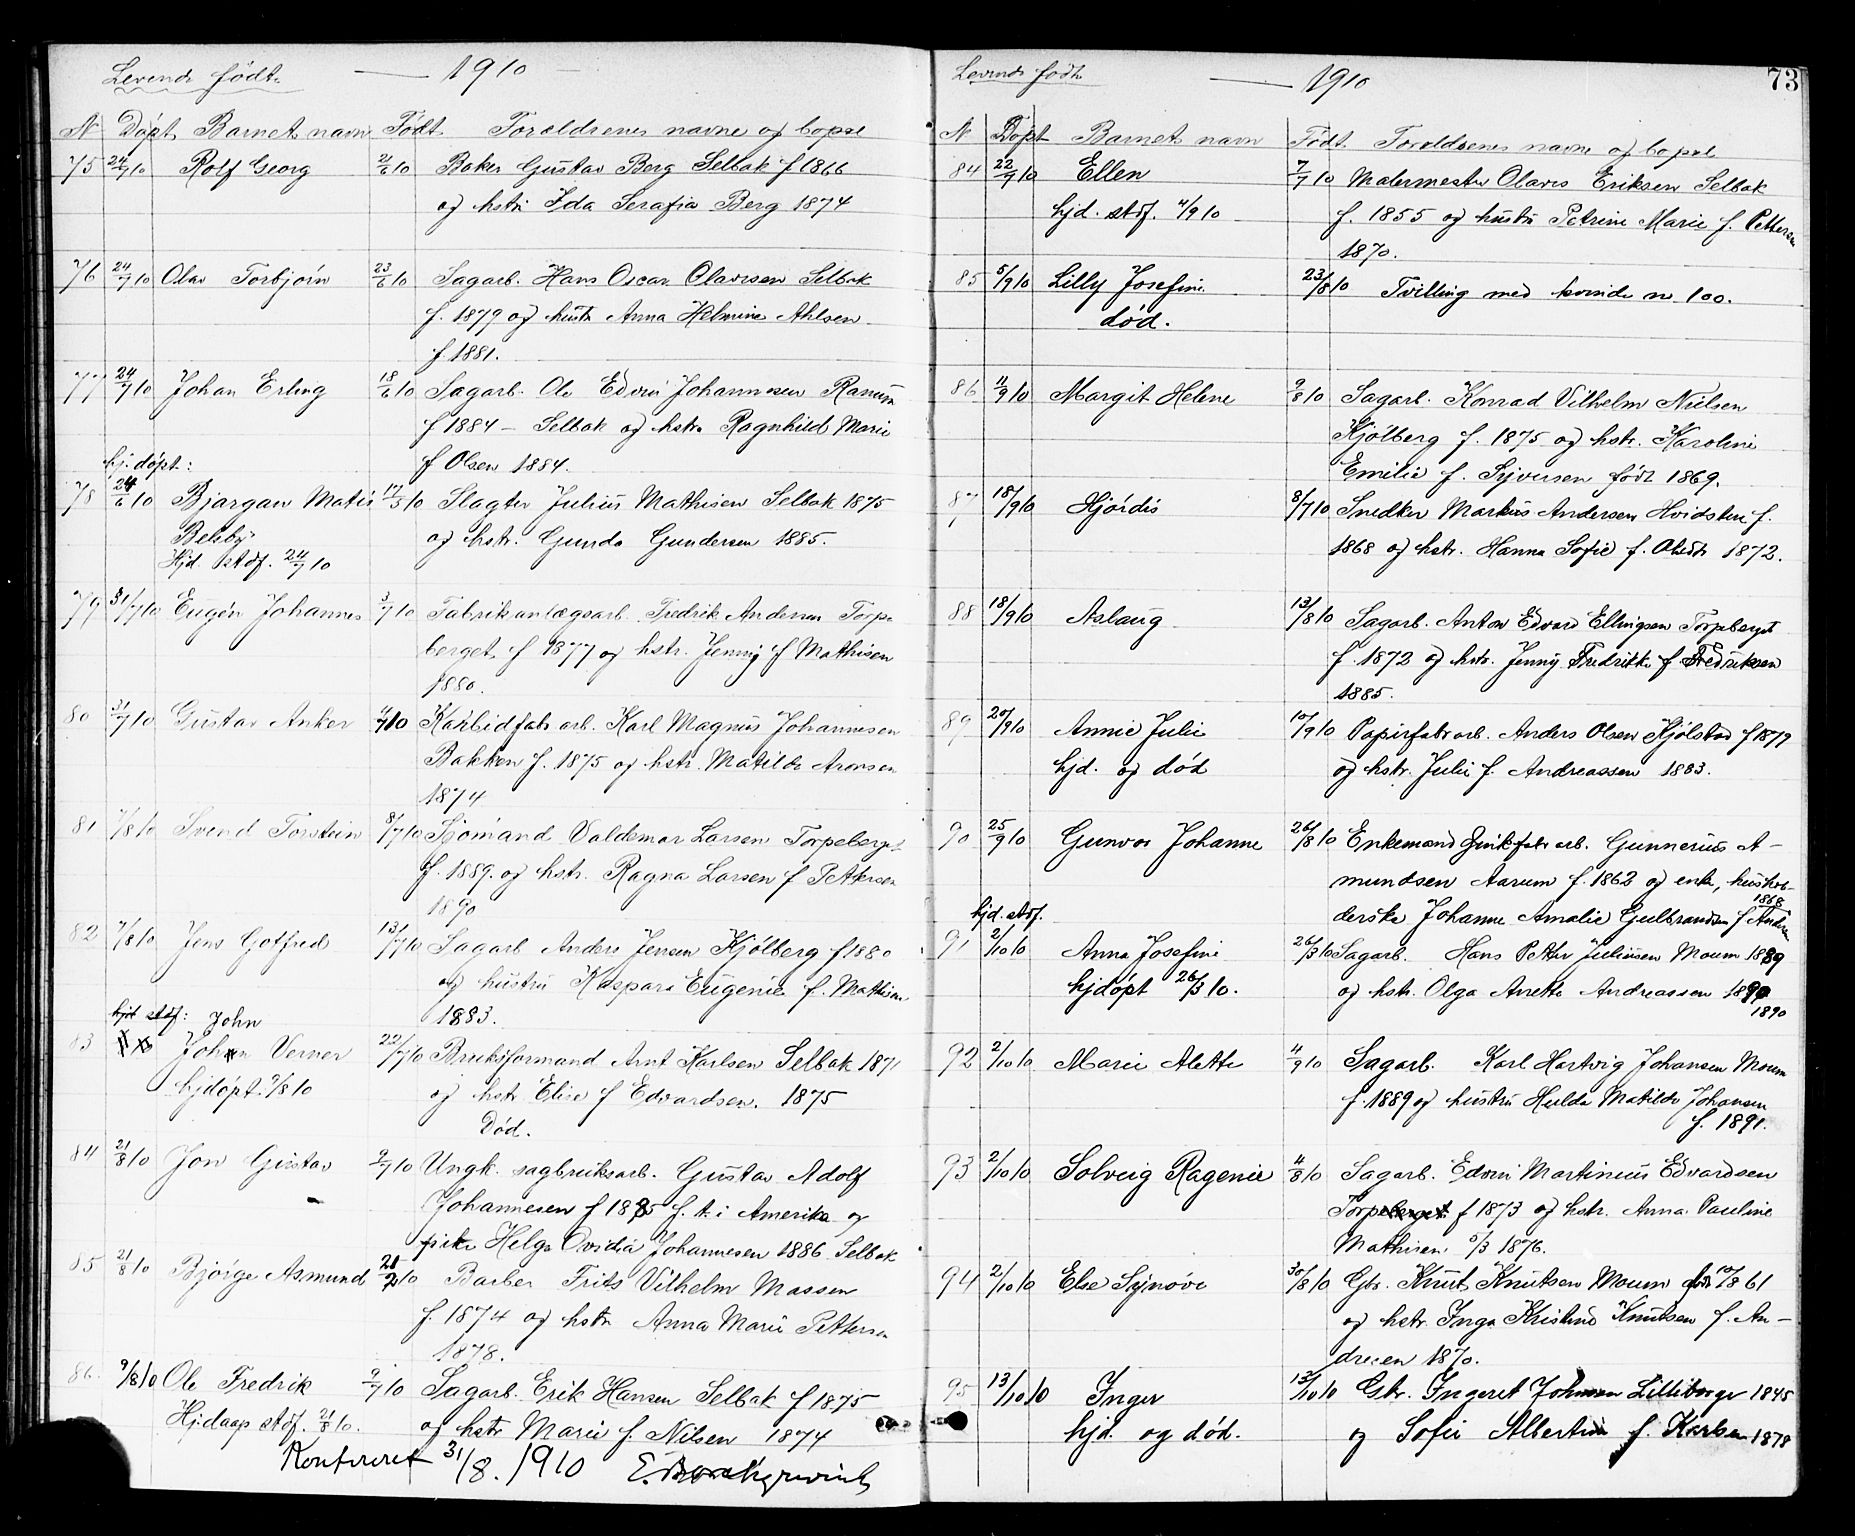 Levende födte — 1910
N Döpt Barnets navn Födt Foraldrenes navne og bopæl
75 24/7 10 Rolf Georg 21/6 10 Baker Gustav Berg Selbak f 1866
og hstru Ida Serafia Berg 1874
76 24/7 10 Olav Torbjörn 23/6 10 Sagarb. Hans Oscar Olavesen Selbak
f. 1879 og hustr Anna Helmine Ahlsen
f 1881.
77 24/7 10 Johan Erling 18/6 10 Sagarb. Ole Edvin Johannesen Ranum
f 1884 – Selbak og hstru Ragnhild Marie
f Olsen 1884.
hj. döpt:
78 24/6 10 Bjargan Matis 17/5 10 Slagter Julius Mathisen Selbak 1875
og hstr. Gunda Gundersen 1885.
Hjd. stdf. 24/7 10
79 31/7 10 Eugén Johannes 3/7 10 Fabrikanlægsarb. Fredrik Andersen Torpe-
berget f 1877 og hstr. Jenny f Mathisen
1880.
80 31/7 10 Gustav Anker 4/7 10 Karbidfabr arb. Karl Magnus Johannesen
Bakken f. 1875 og hstr. Matilde Aronsen
1874
81 7/8 10 Svend Torstein 8/7 10 Sjömand Valdemar Larsen Torpeberget
f. 1889. og hstr. Ragna Larsen f Pettersen
1890
82 7/8 10 Jens Gotfred 13/7 10 Sagarb Anders Jensen Kjölberg f 1880
og hustru Kaspara Eugenie f. Mathisen
1883.
hjd stdf: John
83 Johan Verner 22/7 10 Bruksformand Arnt Karlsen Selbak 1871
hjdöpt. 9/8 10 og hstr Elise f Edvardsen. 1875
Död.
84 21/8 10 Jon Gustav 2/7 10 Ungk. sagbruksarb. Gustav Adolf
Johannesen f 1885 f. t. i Amerika og
pike Helga Ovidia Johannesen 1886 Selbak
85 21/8 10 Bjorge Asmund 20/7 10 Barber Frits Vilhelm Massen
f. 1874 og hstr Anna Marie Pettersen
1878.
86. 9/8 10 Ole Fredrik 2/7 10 Sagarb. Erik Hansen Selbak f 1875
Hjdaap stdf. 21/8 10. og hstr Marie f. Nilsen 1874
Konfereret 31/8. 1910
73
Levende födte — 1910
N Döpt Barnets navn Födt. Foraldrenes navne og bopæl
84 22/7 10 Ellen 7/7 10 Malermester Olaves Eriksen Selbak
hjd. stdf. 4/9 10 f. 1855 og hustru Petrine Marie f. Pettersen
1870.
85 5/9 10 Lilly Josefine 23/8 10 Tvilling med kvinde no 100.
död.
86 11/9 10 Margit Helene 9/8 10 Sagarb. Konrad Vilhelm Nielsen
Kjölberg f. 1875 og hstr. Karoline
Emilie f. Syversen födt 1869.
87 18/9 10 Hjördis 8/7 10 Snedker Markus Andersen Hvidsten f.
1868 og hstr. Hanna Sofie f. 1872.
88 18/9 10 Aslaug 13/8 10 Sagarb. Anton Edvard Ellingsen Torpeberget
f. 1872 og hstr. Jenny Fredrikke f Fredriksen
1885.
89 20/9 10 Annie Julie 10/9 10 Papirfabr arb. Anders Olsen Kjölstad f 1879
hjd. og död og hstr. Julie f. Andreassen 1883.
90 25/9 10 Gunvor Johanne 26/8 10 Enkemand Zinkfabr arb. Gunnerius A–
mundsen Aarum f. 1862 og enke, hushol-
derske Johanne Amalie Gulbrandsen f Andersen 1868
hjd. stdf.
91 2/10 10 Anna Josefine 26/3 10 Sagarb. Hans Petter Juliusen Moum 1889
hjdöpt 26/3 10. og hstr. Olga Anette Andreassen 1890
1890
92 2/10 10 Marie Alette 4/9 10 Sagarb. Karl Hartvig Johansen Moum
f. 1889 og hustru Hulda Matilde Johansen
f. 1891.
93 2/10 10 Solveig Ragenie 4/8 10 Sagarb. Edvin Martinius Edvardsen
Torpeberget f 1873 og hstr. Anna Pauline
Mathisen 5/3 1876.
94 2/10 10 Else Synöve 30/8 10 Gbr. Knut Knutsen Moum födt 10/8 61
og hstr. Inga Kristine Knutsen f. An–
dresen 1870.
95 13/10 10 Inger 13/10 10 Gbr. Ingeret Johnsen Lilleborge 1845
hjd. og död. og Sofie Albertine f. Karlsen 1878